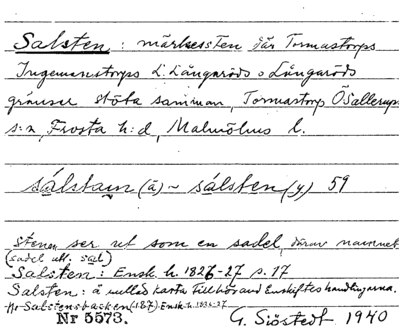 Salsten : märkessten där Tormastorps
Ingemanstorps L. Långaröds o Långaröds
gränser stöta samman, Tormastorp Ö Sallerup
s:n, Frosta h:d, Malmöhus l.
sálstain (ä) ~ sálsten (y) 59
stenen ser ut som en sadel, därav namnet
(sadel utt. sal)
Salsten : Ensk. h. 1826-27 s. 17
Salsten : å karta tillhörand Enskiftes handlingarna.
Nr Salstensbacken (187) Ensk. h. 1826-27
Nr 5573. G. Sjöstedt 1940